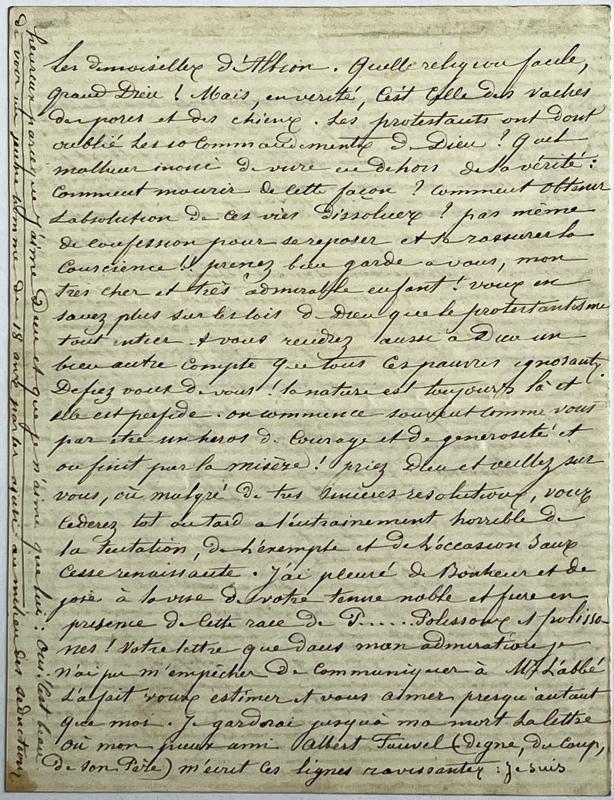 les demoiselles d'Albion. Quelle religion facile,
grand Dieu ! Mais, en verité, c'est celle des vaches
des porcs et des chiens. Les protestants ont donc
oublié les 10 commandements de Dieu ? Quel
malheur inoui de vivre en dehors de la vérité :
Comment mourir de cette façon ? Comment obtenir
l'absolution de ces vies dissolues ? pas même
de confession pour se reposer et se rassurer la
Conscience !! prenez bien garde a vous, mon
très cher et très admirable enfant ! vous en
savez plus sur les lois de Dieu que le protestantisme
tout entier & vous rendrez aussi à Dieu un
bien autre compte que tous ces pauvres ignorants.
Defiez vous de vous ! la nature est toujours là et
elle est perfide. on commence souvent comme vous
par être un heros de courage et de generosité et
on finit par la misère ! priez Dieu et veillez sur
vous, où malgré de très sincères resolutions, vous
cederez tot ou tard a l'entrainement horrible de
la tentation, de l'exemple et de l'occasion sans
cesse renaissante. J'ai pleuré de Bonheur et de
joie à la vue de votre tenue noble et pure en
presence de cette race de P...... Polissons et polisso-
nes ! Votre lettre que dans mon admiration je
n'ai pu m'empêcher de communiquer à Mr L'abbé
l'a fait vous estimer et vous aimer presqu'autant
que moi. Je garderai jusqu'à ma mort la lettre
où mon jeune ami Albert Fauvel (digne, du coup,
de son Père) m'ecrit ces lignes ravissantes : je suis
heureux parce que j'aime Dieu et que je n'aime que lui : Oui, c'est beau
de voir un jeune homme de 18 ans parler ainsi au milieu des seductions